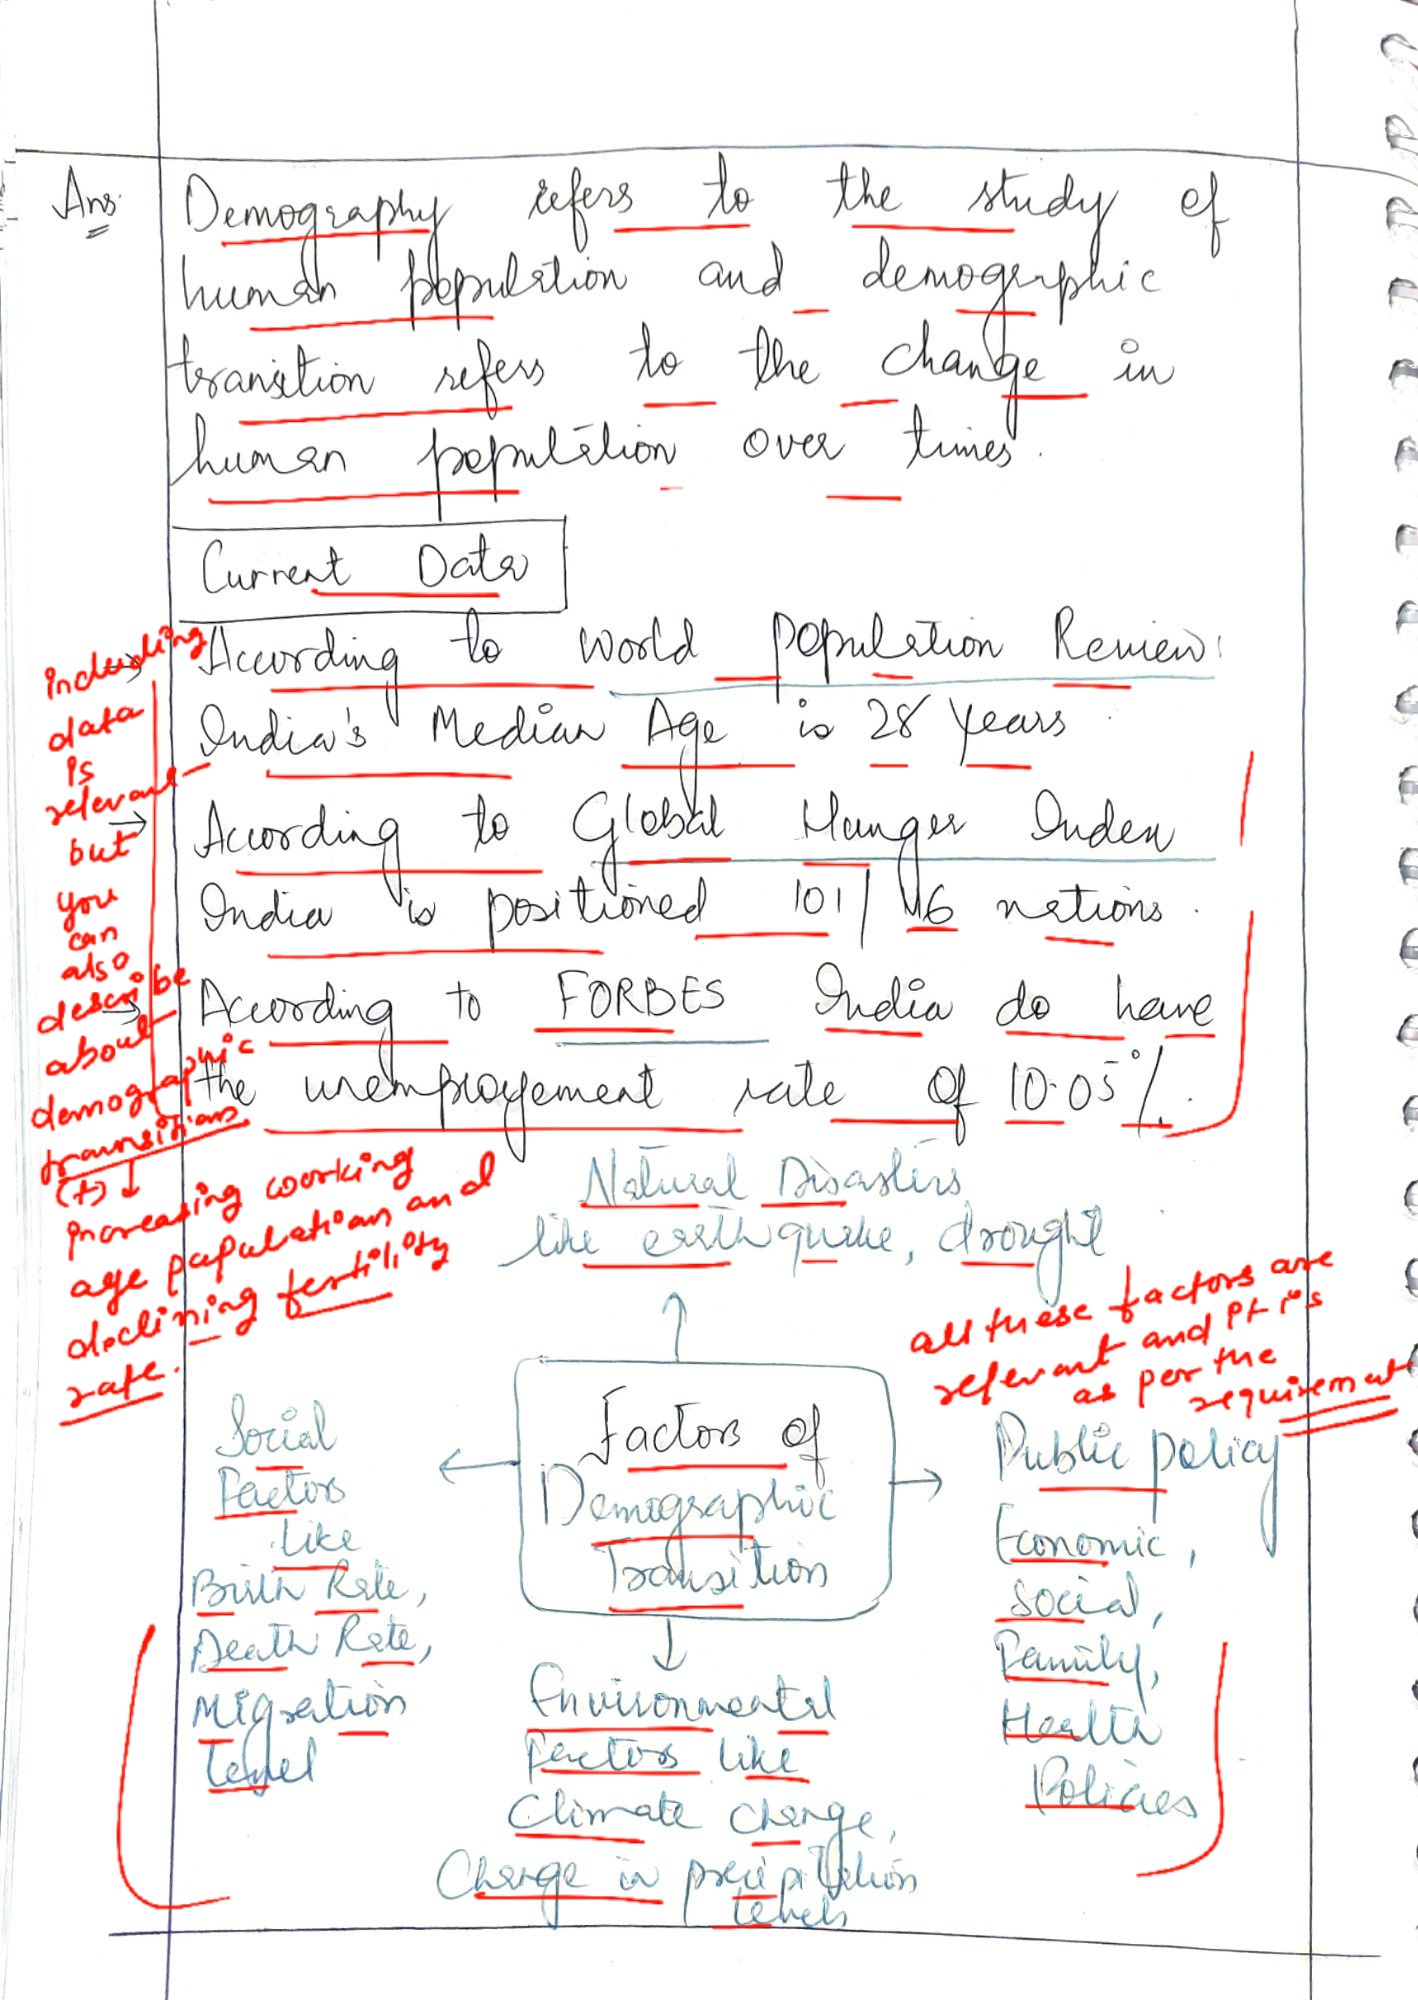 Ans.
Demography refers to the study of
human population and demographic
transition refers to the change in
human population over times.
Current Data
→ According to World Population Review:
India's Median Age is 28 years.
→ According to Global Hunger Index
India is positioned 101/116 nations.
→ According to FORBES India do have
the unemployement rate of 10.05%.
including
data
is
relevant
but
you
can
also
describe
about
demographic
transitions
(+) ↓
increasing working
age population and
declining fertility
rate.
Natural Disasters
like earthquake, drought
all these factors are
relevant and it is
as per the
requirement
Factors of
Demographic
Transition
Social
Factors
like
Birth Rate,
Death Rate,
Migration
Level
Public policy
Economic,
Social,
Family,
Health
Policies
Environmental
Factors like
Climate change,
Change in precipitation
levels